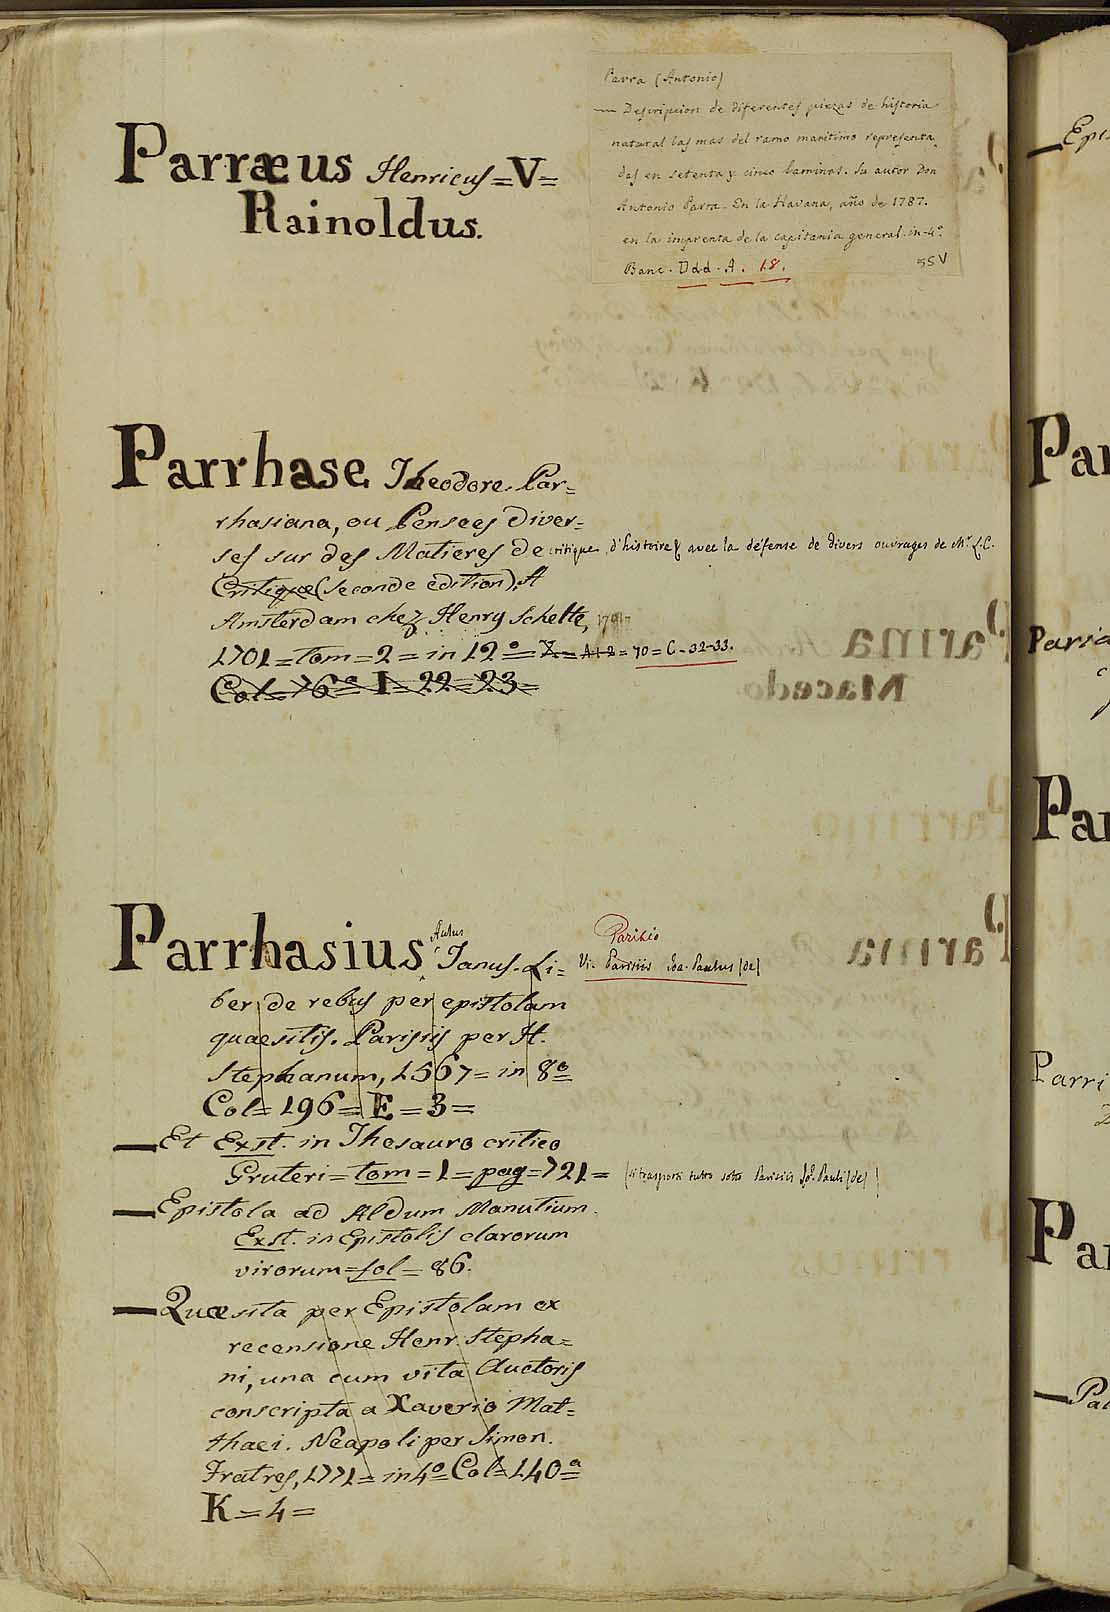 Parra (Antonio)
— Descripcion de diferentes piezas de historia
natural las mas del ramo maritimo representa
das en setenta y cinco laminas. Su autor Don
Antonio Parra. En la Havana, año de 1787.
en la imprenta de la capitania general. in-4º
Banc. Ddd. A. 18.
Parræus Henricus = V =
Rainoldus.
Parrhase Theodore. Par=
rhasiana, ou Pensees Diver=
ses sur des Matieres de critique, d'histoire & avec la défense de divers ouvrages de Mr. L. C.
Critique (seconde edition). A
Amsterdam chez Henry Schelte,
1701 = tom = 2 = in 12º = 70 = C - 32-33.
Col = 76ª I = 22 = 23 =
Parrhasius Aulus Janus. Li= Parisio
V. Parisiis Joa. Paulus (de)
ber de rebus per epistolam
quaesitis. Parisiis per H.
Stephanum, 1567 = in 8º
Col = 196 = E = 3 =
— Et Exst. in Thesauro critico
Gruteri = tom = 1 = pag = 721 = (si trasporti tutto sotto Parisiis Jo. Pauli (de))
— Epistola ad Aldum Manutium.
Exst. in Epistolis clarorum
virorum = fol = 86.
— Quæsita per Epistolam ex
recensione Henr. Stepha=
ni, una cum vita Auctoris
conscripta a Xaverio Mat=
thaei. Neapoli per Simon.
Fratres, 1771 = in 4º = Col = 140ª
K = 4 =
Par
Par
Parri
Par